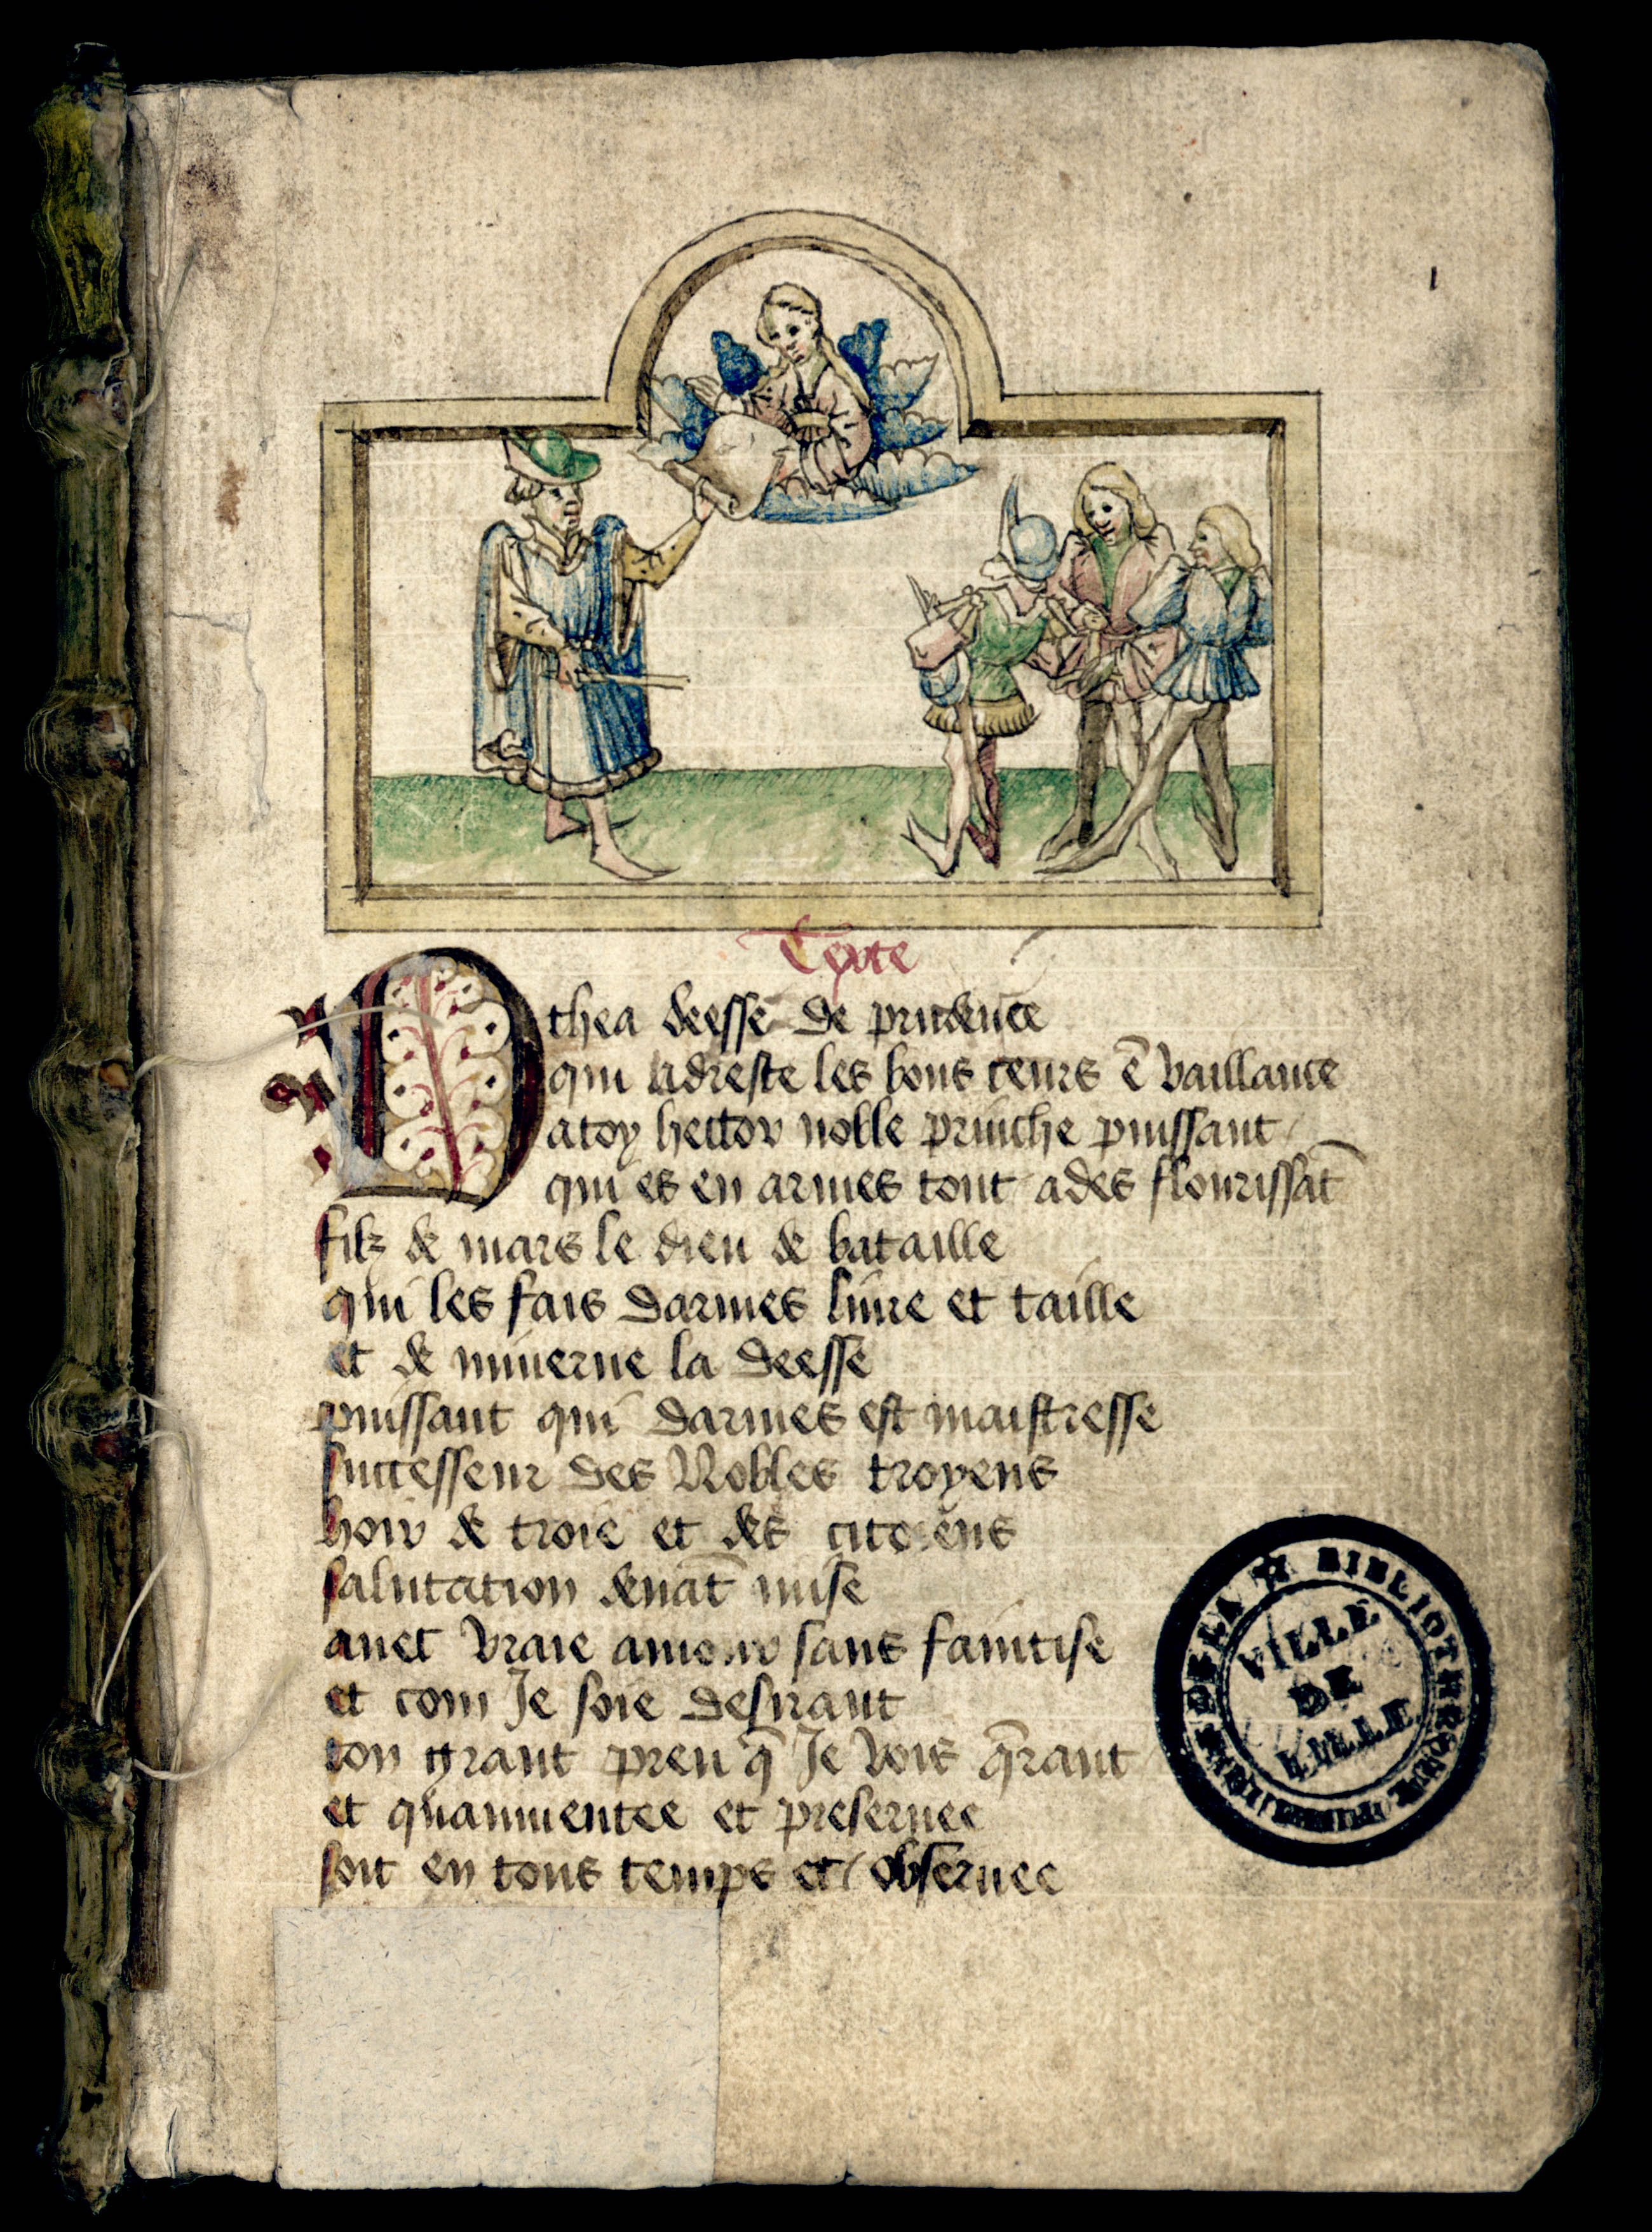 1
Texte
Othea deesse de prudence
qui adreste les bons ceurs ē vaillance
atoy hector noble prinche puissant
qui es en armes tout ades flourissāt
filz de mars le dieu de bataille
qui les fais darmes liure et taille
et de minerue la deesse
puissant qui darmes est maistresse
successeur des Nobles troyens
hoir de troie et des citoiens
salutation deuāt mise
auec vraie amour sans faintise
et com Je soie desirant
ton grant preu q̄ Je vois q̄rant
et quaumentee et preseruee
soit en tous temps et obseruee
BIBLIOTHEQUE DE LA
VILLE
DE
LILLE